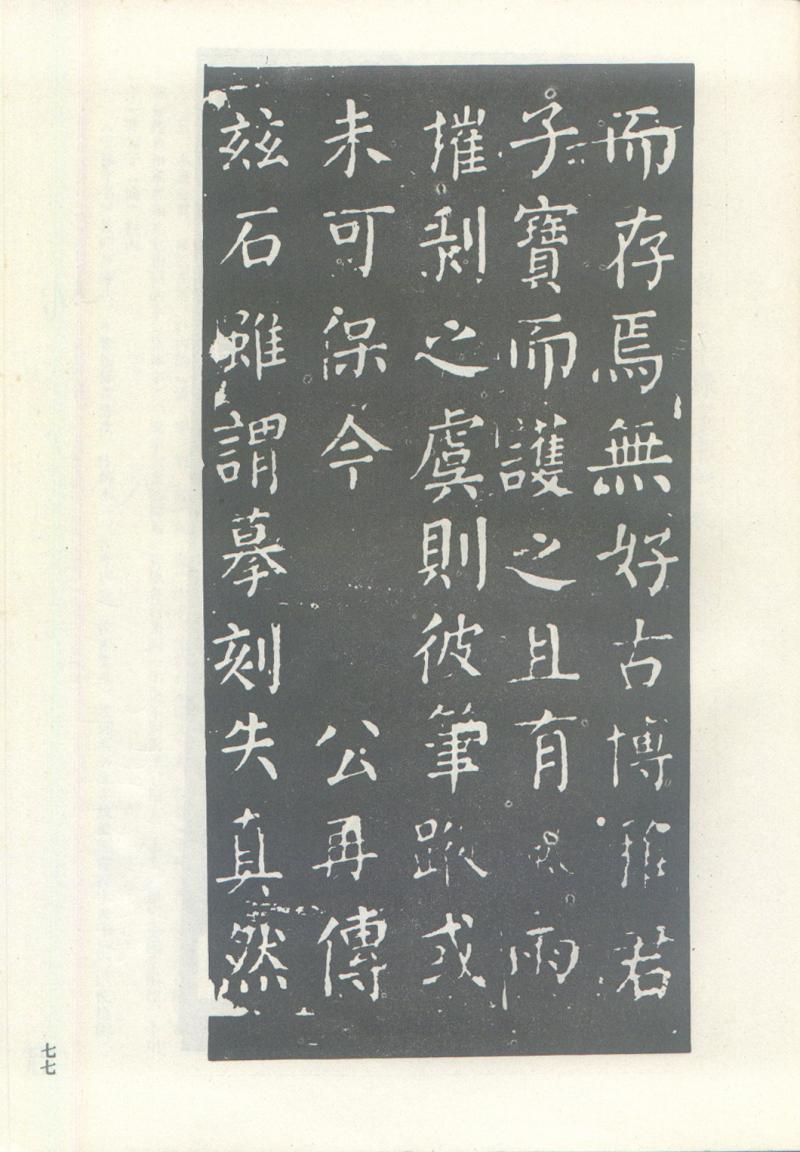 而存焉無好古博雅君
子寶而護之且有風雨
摧剥之虞則彼筆蹤或
未可保今 公再傳
兹石雖謂摹刻失真然
七七